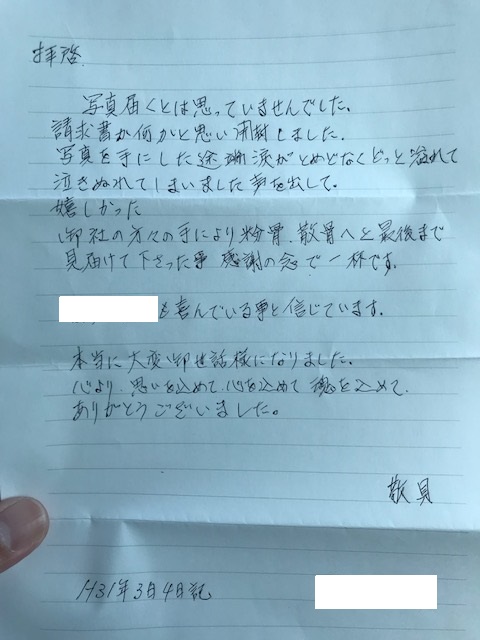 拝啓
写真届くとは思っていませんでした。
請求書か何かと思い開封しました。
写真を手にした途端涙がとめどなくどっと溢れて
泣きぬれてしまいました声を出して。
嬉しかった
御社の方々の手により粉骨、散骨へと最後まで
見届けて下さった事 感謝の念で一杯です。
も喜んでいる事と信じています。
本当に大変御世話様になりました。
心より、思いを込めて、心を込めて 魂を込めて、
ありがとうございました。
敬具
H31年3月4日記